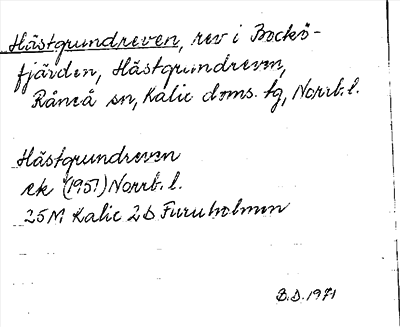 Hästgrundreven, rev i Bockö-
fjärden, Hästgrundreven,
Råneå sn, Kalix doms. tg, Norrb. l.
Hästgrundreven
ek (1951) Norrb. l.
25M Kalix 2b Furuholmen
B.D. 1971